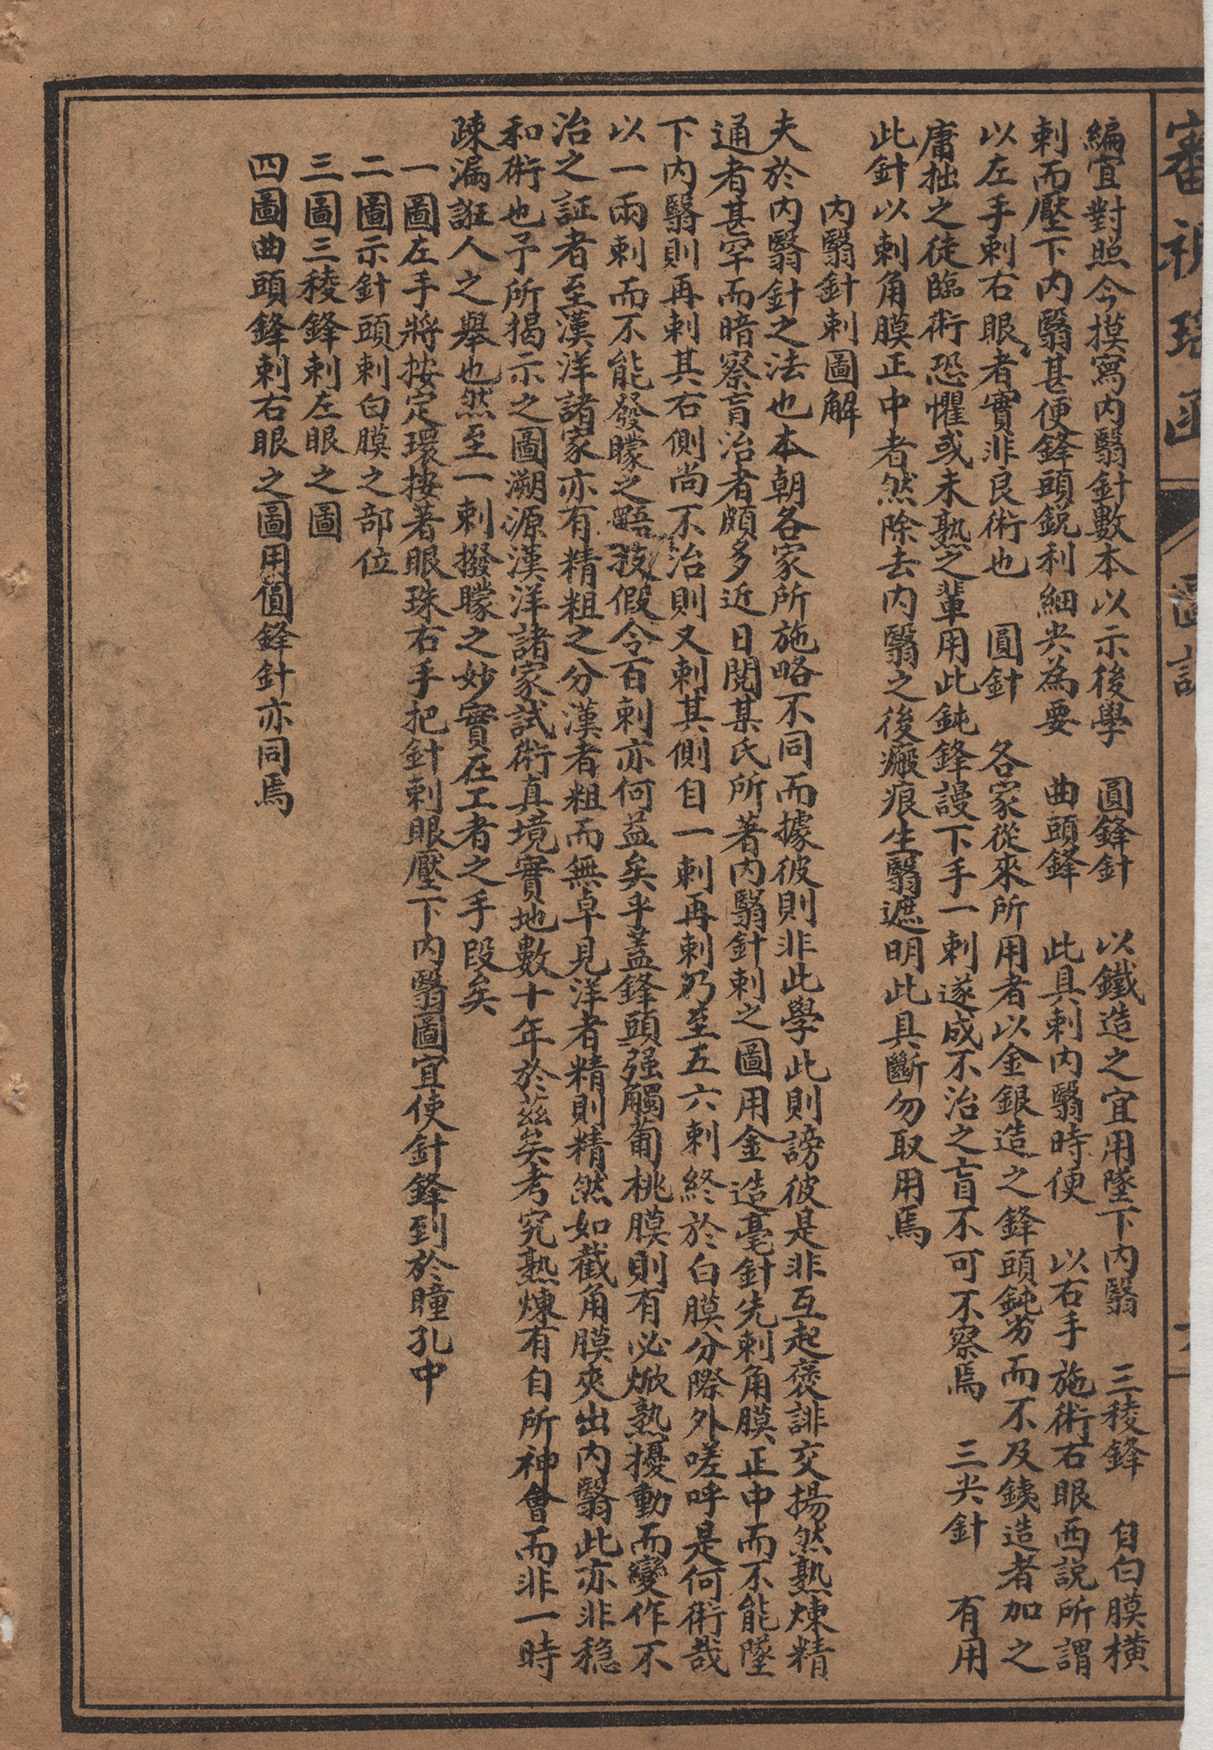 編宜對照今摸寫內翳針數本以示後學　圓鋒針　以鐵造之宜用墜下內翳　三稜鋒　自白膜橫
刺而壓下內翳甚便鋒頭銳利細尖為要　曲頭鋒　此具刺內翳時便　以右手施術右眼西說所謂
以左手刺右眼者實非良術也　圓針　各家從來所用者以金銀造之鋒頭鈍劣而不及銕造者加之
庸拙之徒臨術恐懼或未熟之輩用此鈍鋒謾下手一刺遂成不治之盲不可不察焉　三尖針　有用
此針以刺角膜正中者然除去內翳之後瘢痕生翳遮明此具斷勿取用焉
內翳針刺圖解
夫於內翳針之法也本朝各家所施略不同而據彼則非此學此則謗彼是非互起褒誹交揚然熟煉精
通者甚罕而暗察盲治者頗多近日閱某氏所著內翳針刺之圖用金造毫針先刺角膜正中而不能墜
下內翳則再刺其右側尚不治則又刺其側自一刺再刺乃至五六刺終於白膜分際外嗟呼是何術哉
以一兩刺而不能發矇之技假令百刺亦何益矣乎蓋鋒頭强觸葡桃膜則有必焮熟擾動而變作不
治之証者至漢洋諸家亦有精粗之分漢者粗而無卓見洋者精則精然如截角膜夾出內翳此亦非穏
和術也予所揭示之圖溯源漢洋諸家試術真境實地數十年於茲矣考究熟煉有自所神會而非一時
疎漏誑人之舉也然至一刺撥矇之妙實在工者之手段矣
一圖左手將按定環按著眼珠右手把針刺眼壓下內翳圖宜使針鋒到於瞳孔中
二圖示針頭刺白膜之部位
三圖三稜鋒刺左眼之圖
四圖曲頭鋒刺右眼之圖用圓鋒針亦同焉